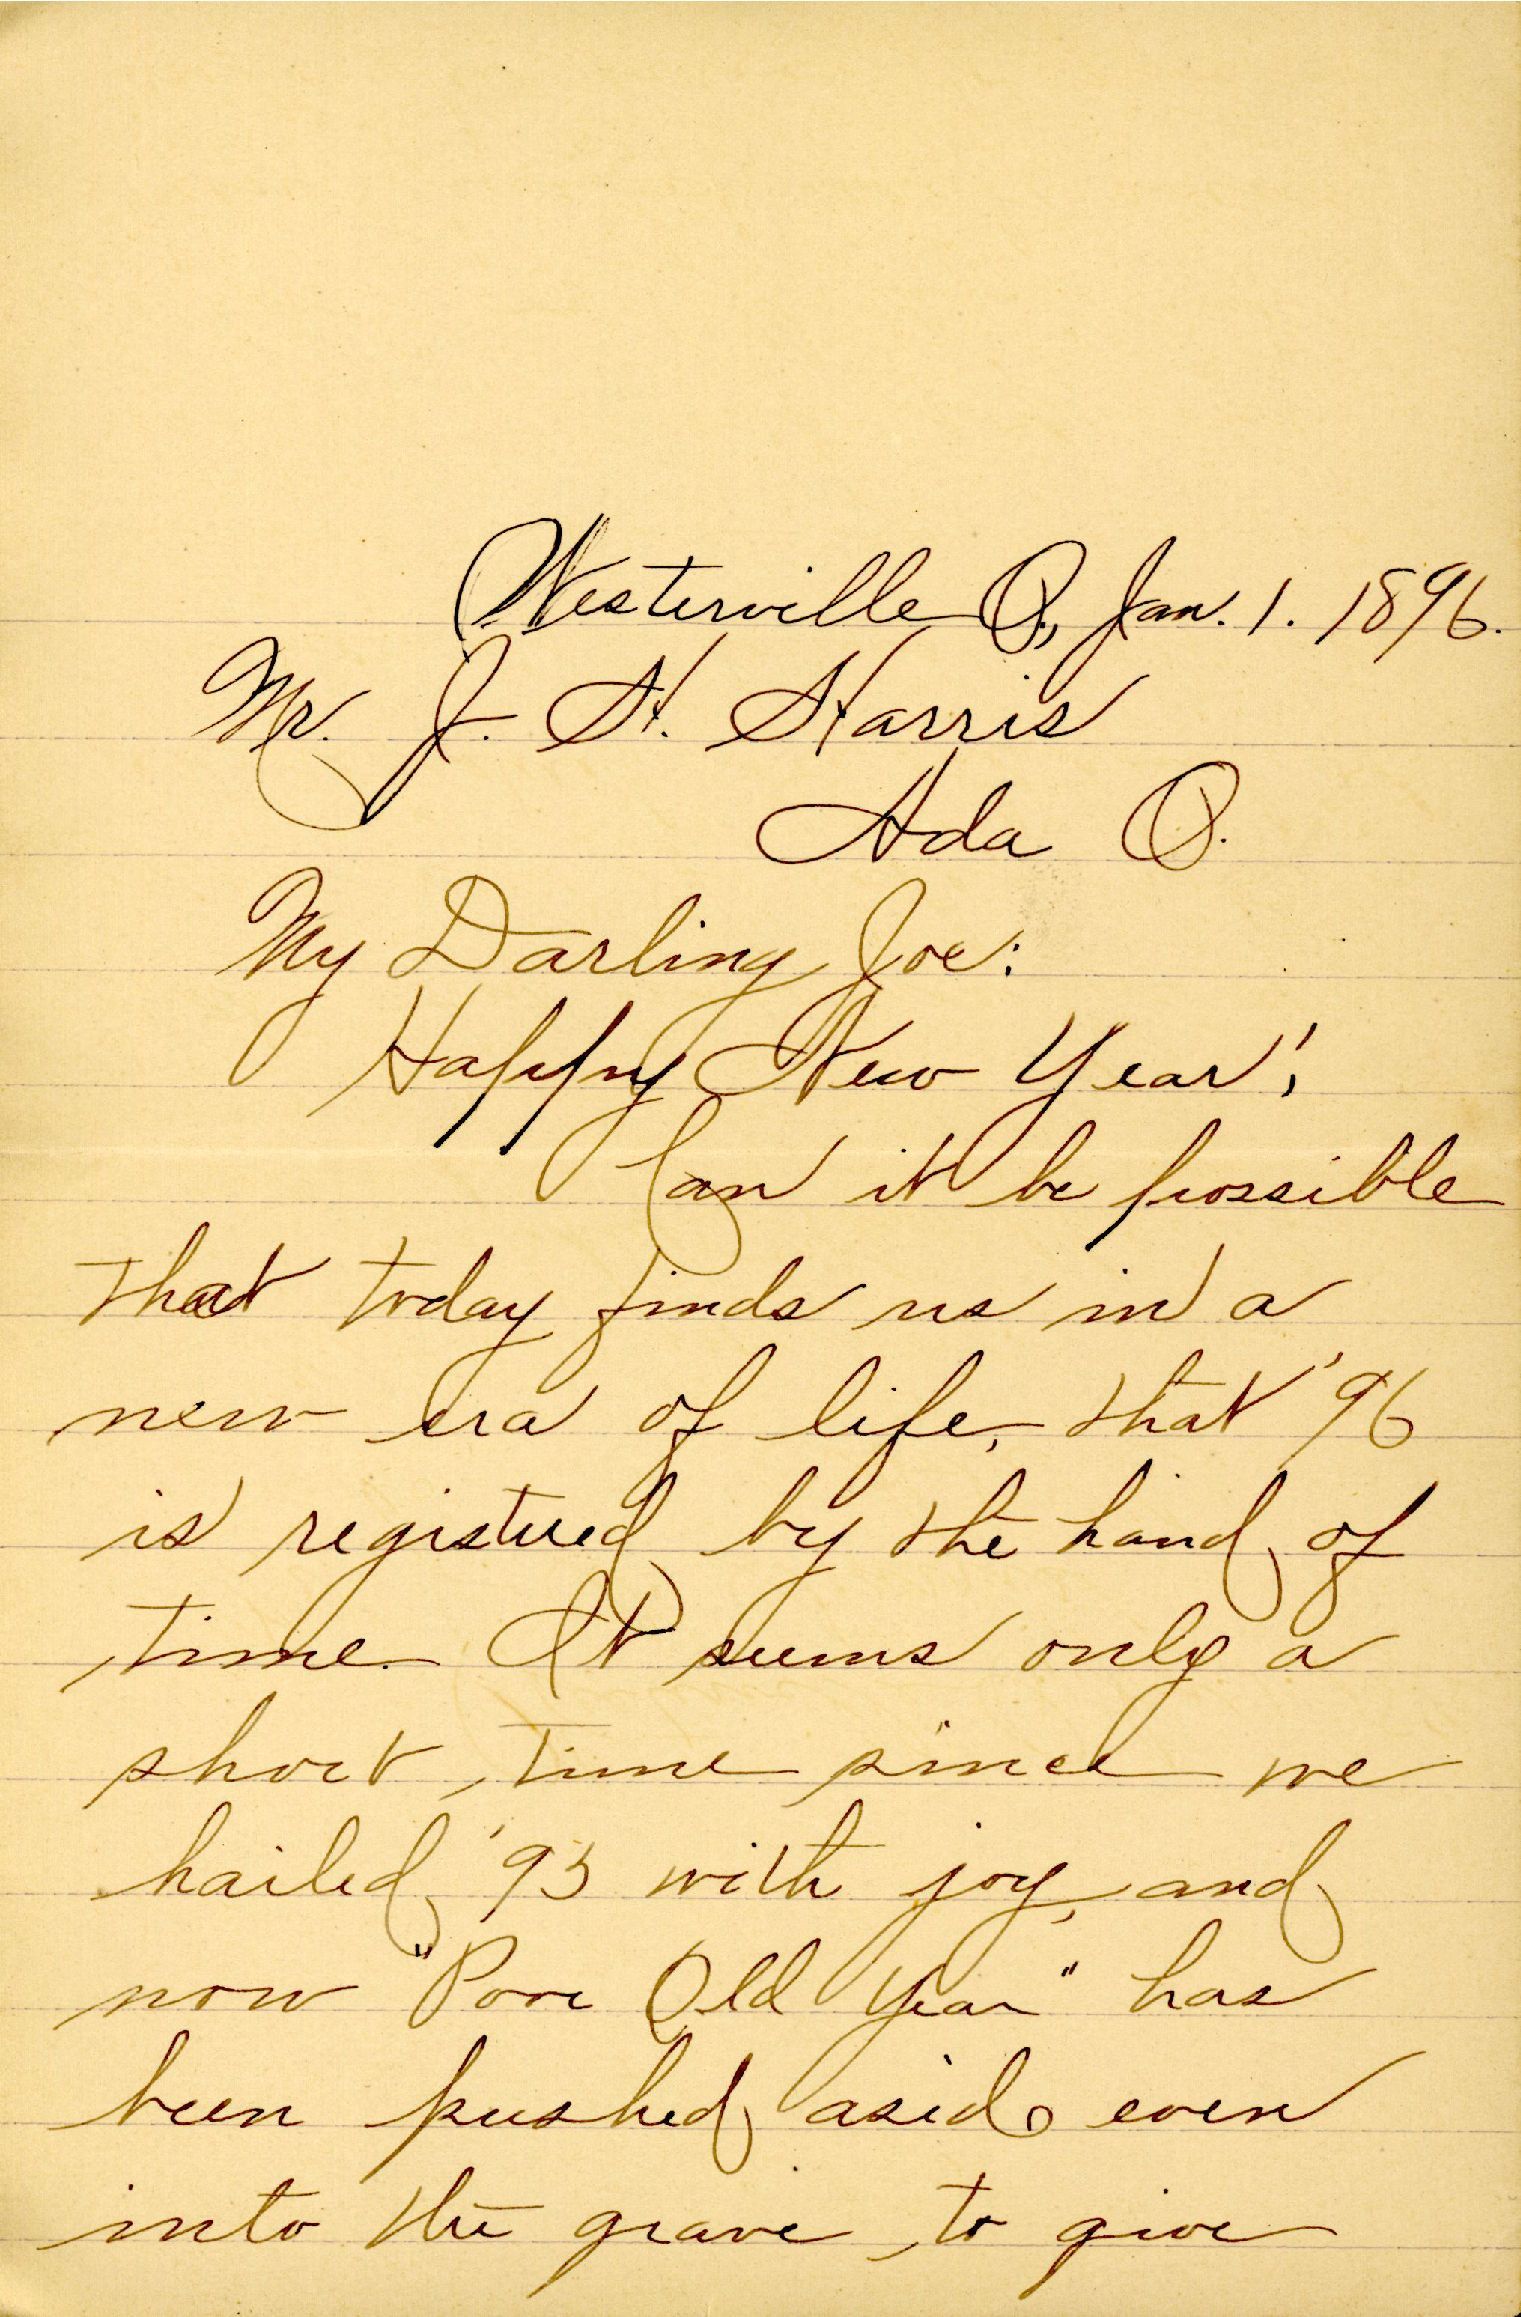 Westerville O., Jan. 1. 1896.
Mr. J. H. Harris
Ada O.
My Darling Joe:
Happy New Year!
Can it be possible
that today finds us in a
new era of life, that '96
is registered by the hand of
time. It seems only a
short time since we
hailed '95 with joy, and
now "Poor Old Year" has
been pushed aside even
into the grave to give